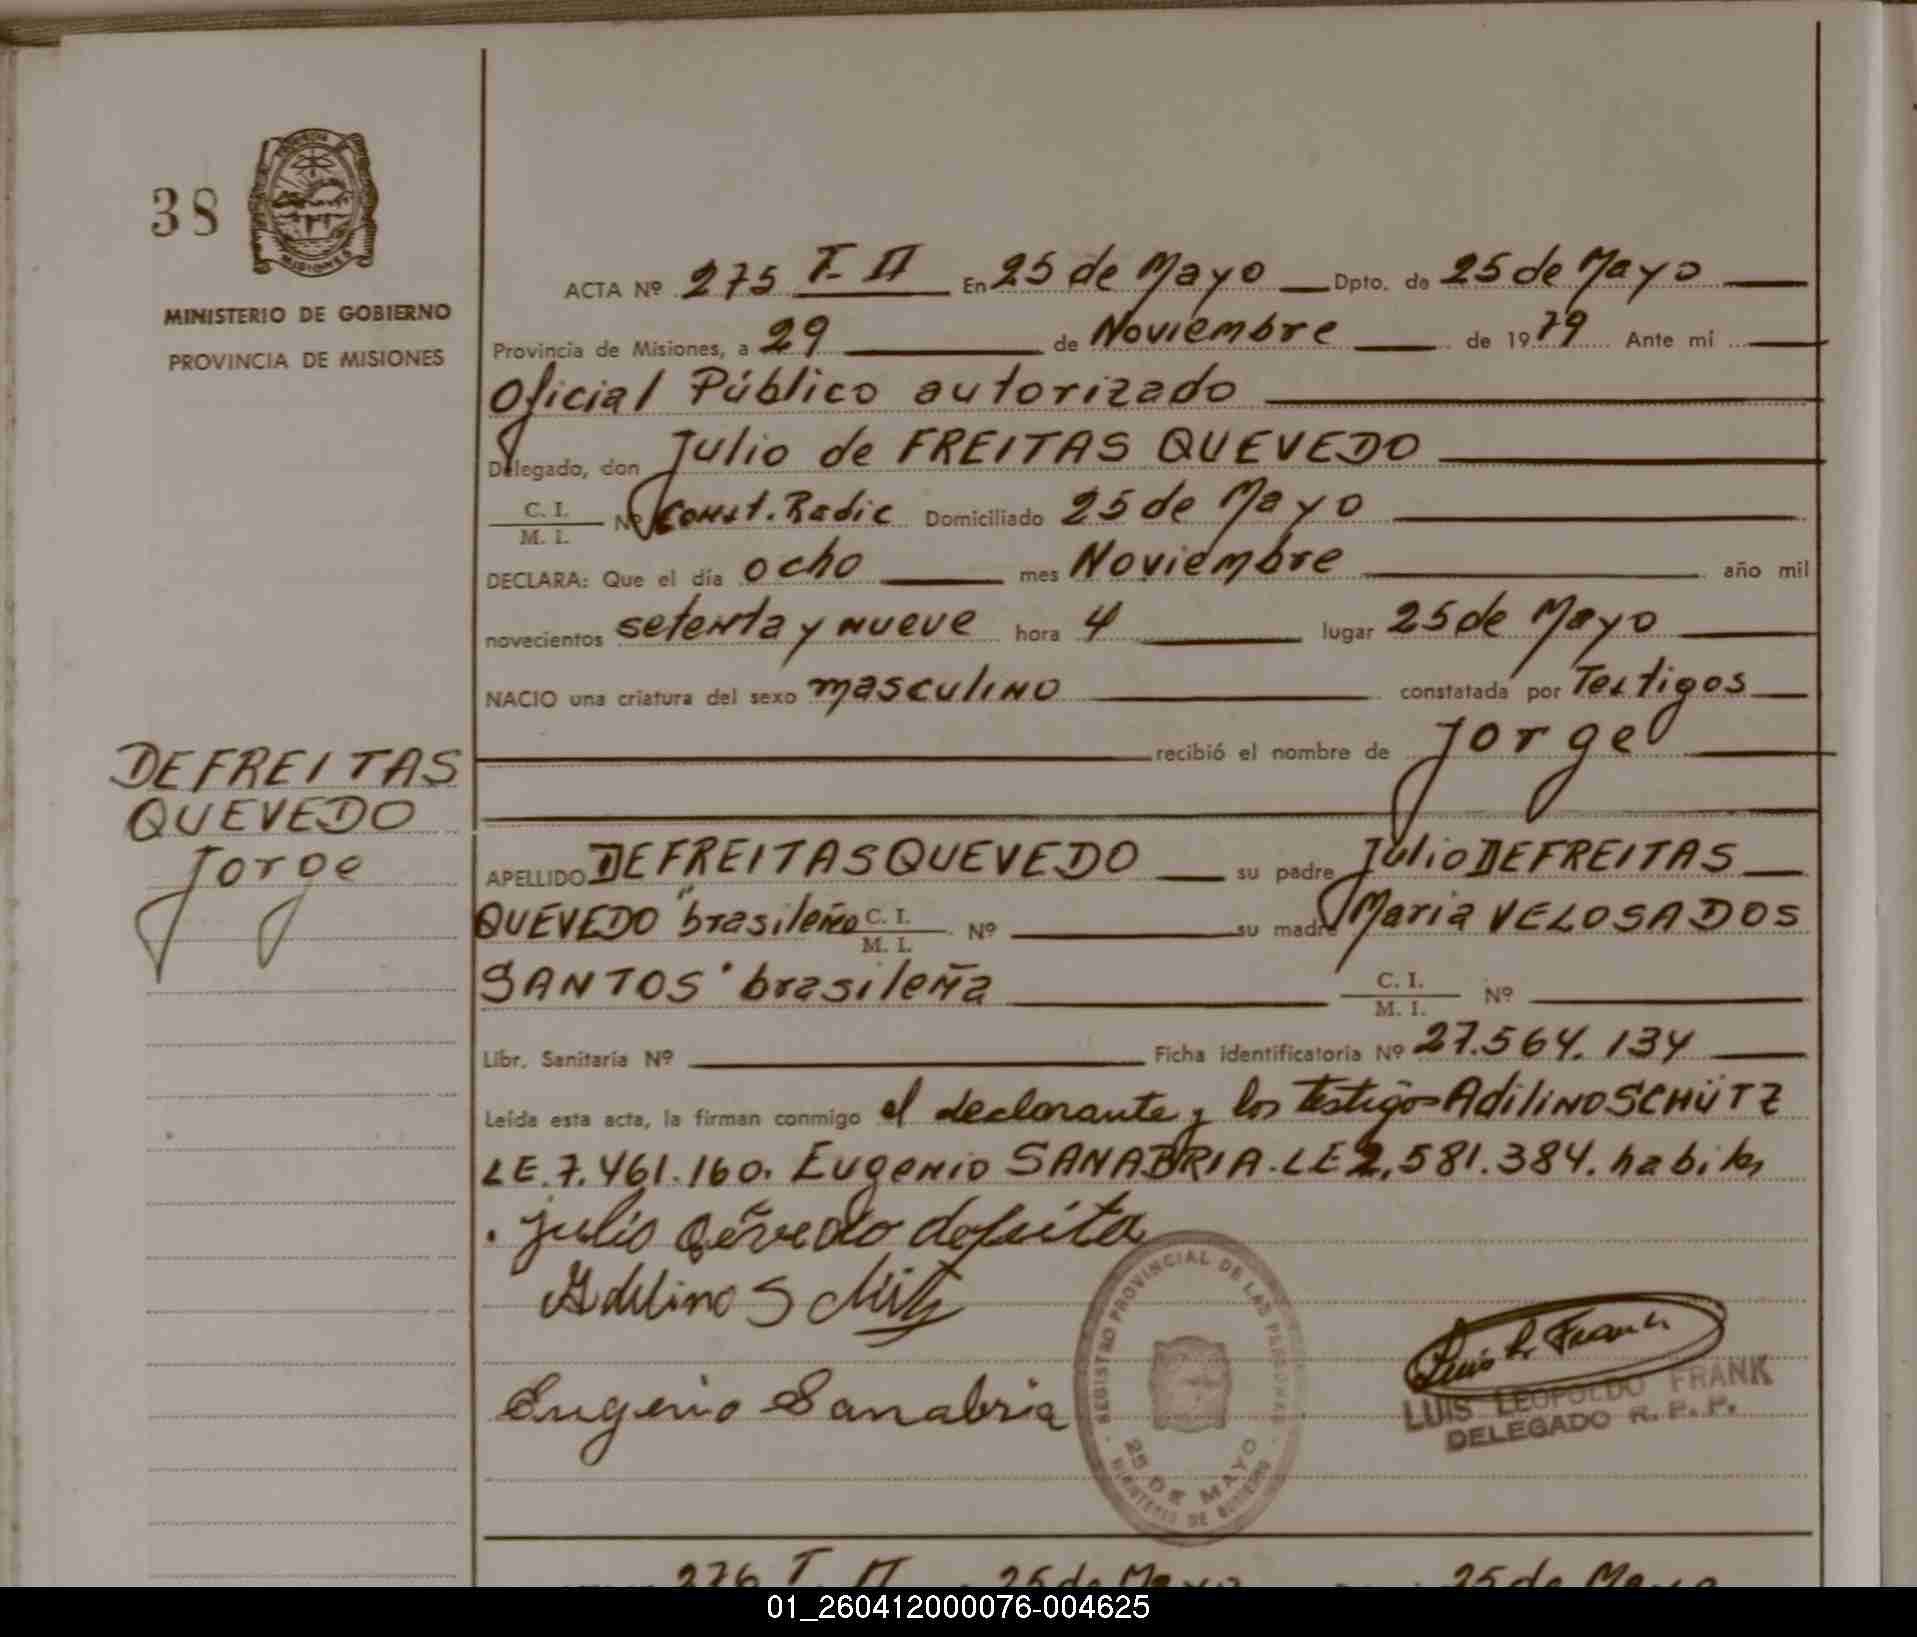 38
MISIONES
MINISTERIO DE GOBIERNO
PROVINCIA DE MISIONES
ACTA Nº 275 T-II En 25 de Mayo Dpto. de 25 de Mayo
Provincia de Misiones, a 29 de Noviembre de 1979 Ante mí
Oficial Público autorizado
Delegado, don Julio de FREITAS QUEVEDO
C. I. / M. I. Nº Const. Radic Domiciliado 25 de Mayo
DECLARA: Que el día ocho mes Noviembre año mil
novecientos setenta y nueve hora 4 lugar 25 de Mayo
NACIO una criatura del sexo masculino constatada por Testigos
recibió el nombre de Jorge
DEFREITAS
QUEVEDO
Jorge
APELLIDO DEFREITAS QUEVEDO su padre Julio DEFREITAS
QUEVEDO "brasileño C. I. / M. I. Nº su madre Maria VELOSA DOS
SANTOS" brasileña C. I. / M. I. Nº
Libr. Sanitaria Nº Ficha identificatoria Nº 27.564.134
Leída esta acta, la firman conmigo el declarante y los testigos Adilino SCHÜTZ
LE.7.461.160. Eugenio SANABRIA-LE 2.581.384. habiles
Julio defreita
Adelino Schütz
Eugenio Sanabria
REGISTRO PROVINCIAL DE LAS PERSONAS
25 DE MAYO
MINISTERIO DE GOBIERNO
Luis L. Frank
LUIS LEOPOLDO FRANK
DELEGADO R. P. P.
276 T. II 25 de Mayo 25 de Mayo
01_260412000076-004625